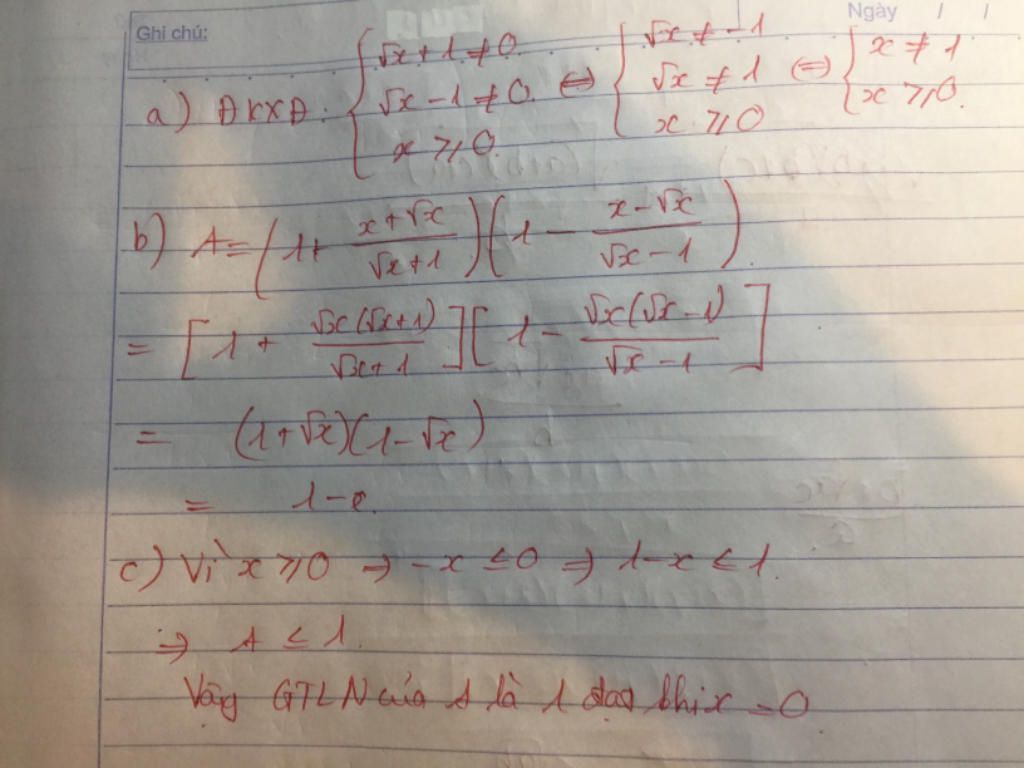 Ghi chú:
Ngày / /
a) ĐKXĐ: { √x + 1 ≠ 0 ; √x − 1 ≠ 0 ; x ≥ 0 ⇔ { √x ≠ −1 ; √x ≠ 1 ; x ≥ 0 ⇔ { x ≠ 1 ; x ≥ 0.
b) A = (1 + (x + √x)/(√x + 1))(1 − (x − √x)/(√x − 1))
= [1 + √x(√x + 1)/(√x + 1)][1 − √x(√x − 1)/(√x − 1)]
= (1 + √x)(1 − √x)
= 1 − x.
c) Vì x ≥ 0 ⇒ −x ≤ 0 ⇒ 1 − x ≤ 1.
⇒ A ≤ 1.
Vậy GTLN của A là 1 đạt khi x = 0